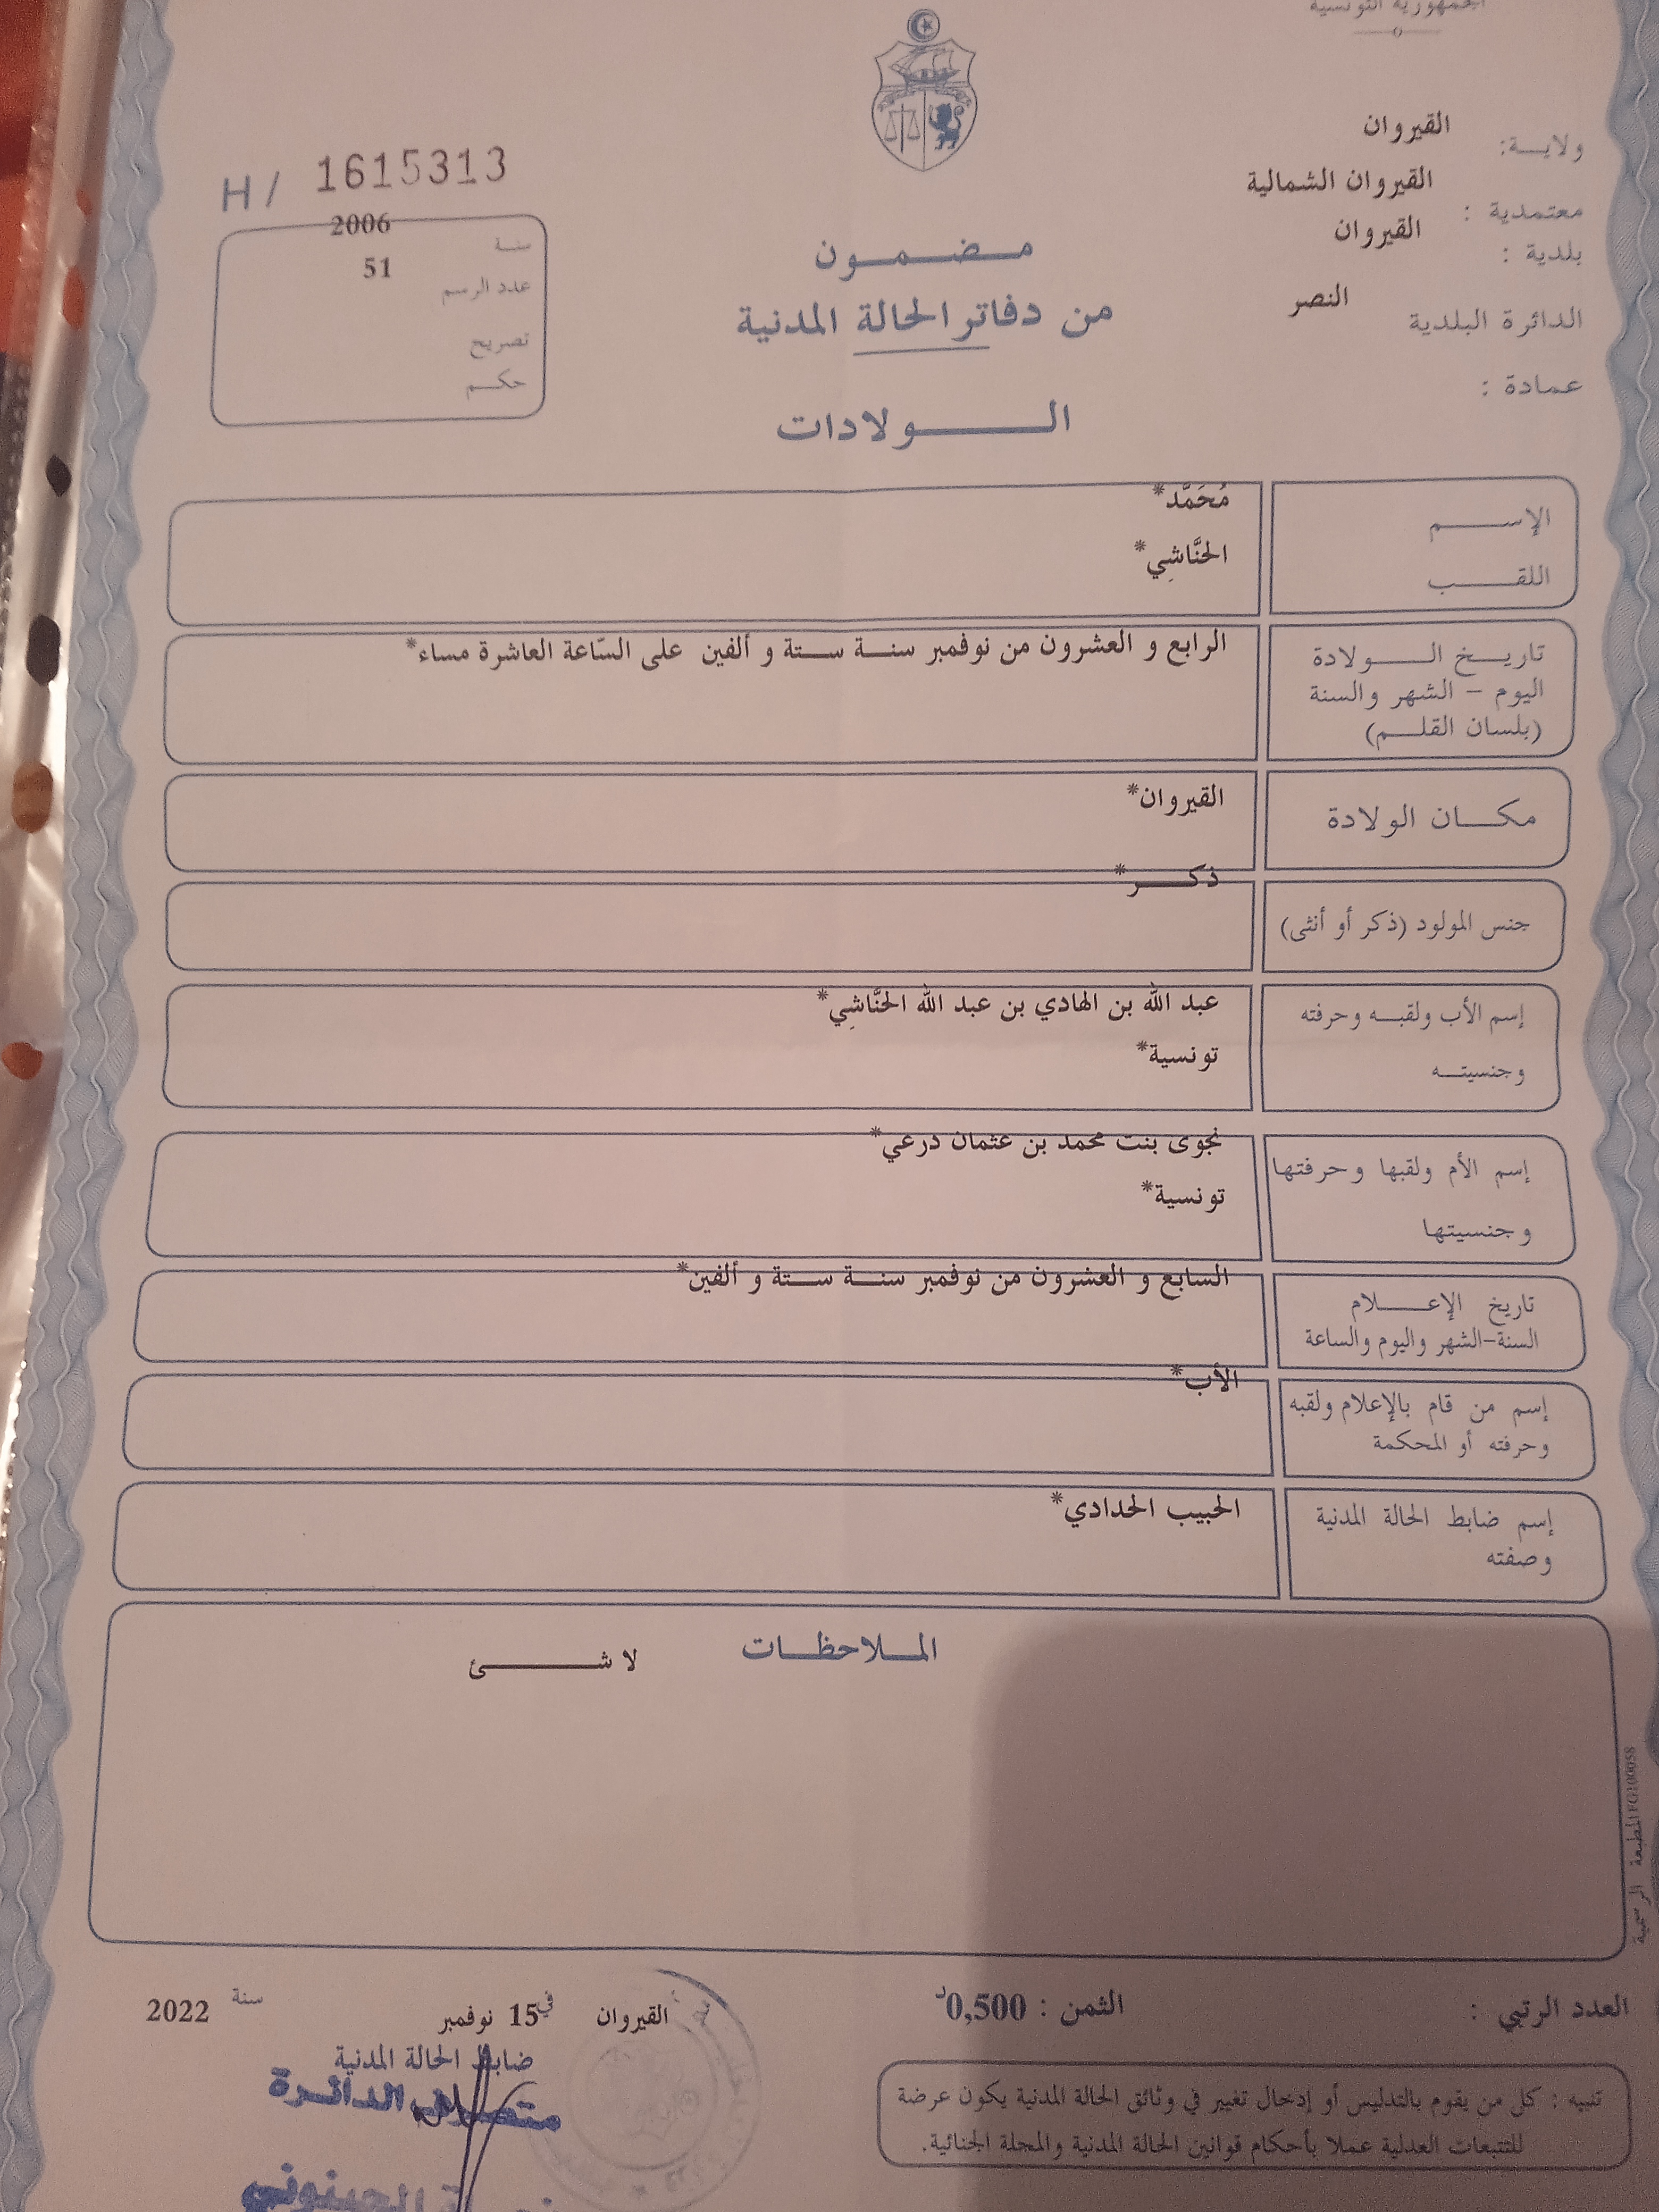 الجمهورية التونسية
ولاية: القيروان
معتمدية : القيروان الشمالية
بلدية : القيروان
الدائرة البلدية النصر
عمادة :
H/ 1615313
سنة 2006
عدد الرسم 51
تصريح
حكم
مضمون
من دفاتر الحالة المدنية
الولادات
الإسم مُحَمَّد*
اللقب الحنَّاشِي*
تاريخ الولادة الرابع و العشرون من نوفمبر سنة ستة و ألفين على السّاعة العاشرة مساء*
اليوم - الشهر والسنة
(بلسان القلم)
مكان الولادة القيروان*
جنس المولود (ذكر أو أنثى) ذكر*
إسم الأب ولقبه وحرفته عبد الله بن الهادي بن عبد الله الحنَّاشِي*
وجنسيته تونسية*
إسم الأم ولقبها وحرفتها نجوى بنت محمد بن عثمان درعي*
وجنسيتها تونسية*
تاريخ الإعلام السابع و العشرون من نوفمبر سنة ستة و ألفين*
السنة-الشهر واليوم والساعة
إسم من قام بالإعلام ولقبه الأب*
وحرفته أو المحكمة
إسم ضابط الحالة المدنية الحبيب الحدادي*
وصفته
الملاحظات
لا شئ
المطبعة الرسمية FG100058
العدد الرتبي :
الثمن : 0,500د
القيروان في 15 نوفمبر سنة 2022
ضابط الحالة المدنية
متصرف الدائرة
تنبيه : كل من يقوم بالتدليس أو إدخال تغيير في وثائق الحالة المدنية يكون عرضة
للتتبعات العدلية عملا بأحكام قوانين الحالة المدنية والمجلة الجنائية.